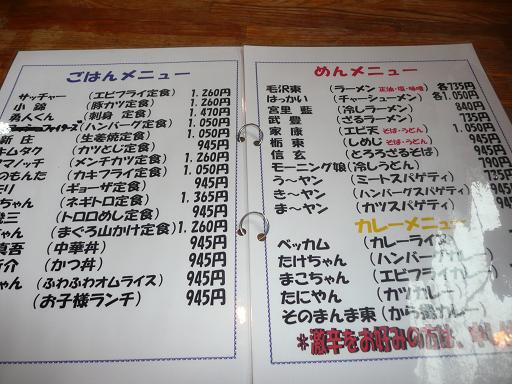 ごはんメニュー
サッチャー (エビフライ定食) 1.260円
小錦 (豚カツ定食) 1.260円
為人くん (刺身 定食) 1.470円
ファイターズ (ハンバーグ定食) 1.050円
新庄 (生姜焼定食) 1.050円
キムタク (カツとじ定食) 945円
マノッチ (メンチカツ定食) 1.260円
のもんた (カキフライ定食) 1.050円
モリ (ギョーザ定食) 945円
ちゃん (ネギトロ定食) 1.365円
三 (トロロめし定食) 945円
ちゃん (まぐろ山かけ定食) 1.260円
真吾 (中華丼) 945円
介 (かつ丼) 945円
ちゃん (ふわふわオムライス) 945円
(お子様ランチ) 945円
めんメニュー
毛沢東 (ラーメン 正油・塩・味噌) 各735円
はっかい (チャーシューメン) 各1.050円
宮里 藍 (冷しラーメン) 840円
武豊 (ざるラーメン) 735円
家康 (エビ天 そば・うどん) 1.050円
栃東 (しめじ そば・うどん) 945円
信玄 (とろろざるそば) 945円
モーニング娘 (冷しうどん) 790円
う～ヤン (ミートスパゲティ) 735円
き～ヤン (ハンバーグスパゲティ) 945円
ま～ヤン (カツスパゲティ) 945円
カレーメニュー
ベッカム (カレーライス)
たけちゃん (ハンバーグカレー)
まこちゃん (エビフライカレー)
たにやん (カツカレー)
そのまんま東 (から揚カレー)
＊激辛をお好みの方は、